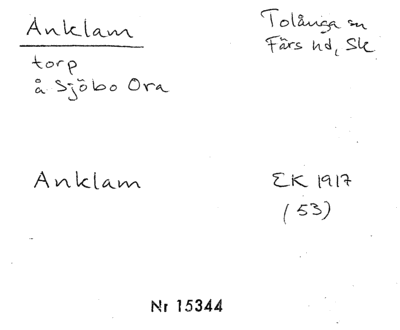 Anklam
Tolånga sn
Färs hd, Sk
torp
å Sjöbo Ora
Anklam
EK 1917
(53)
Nr 15344